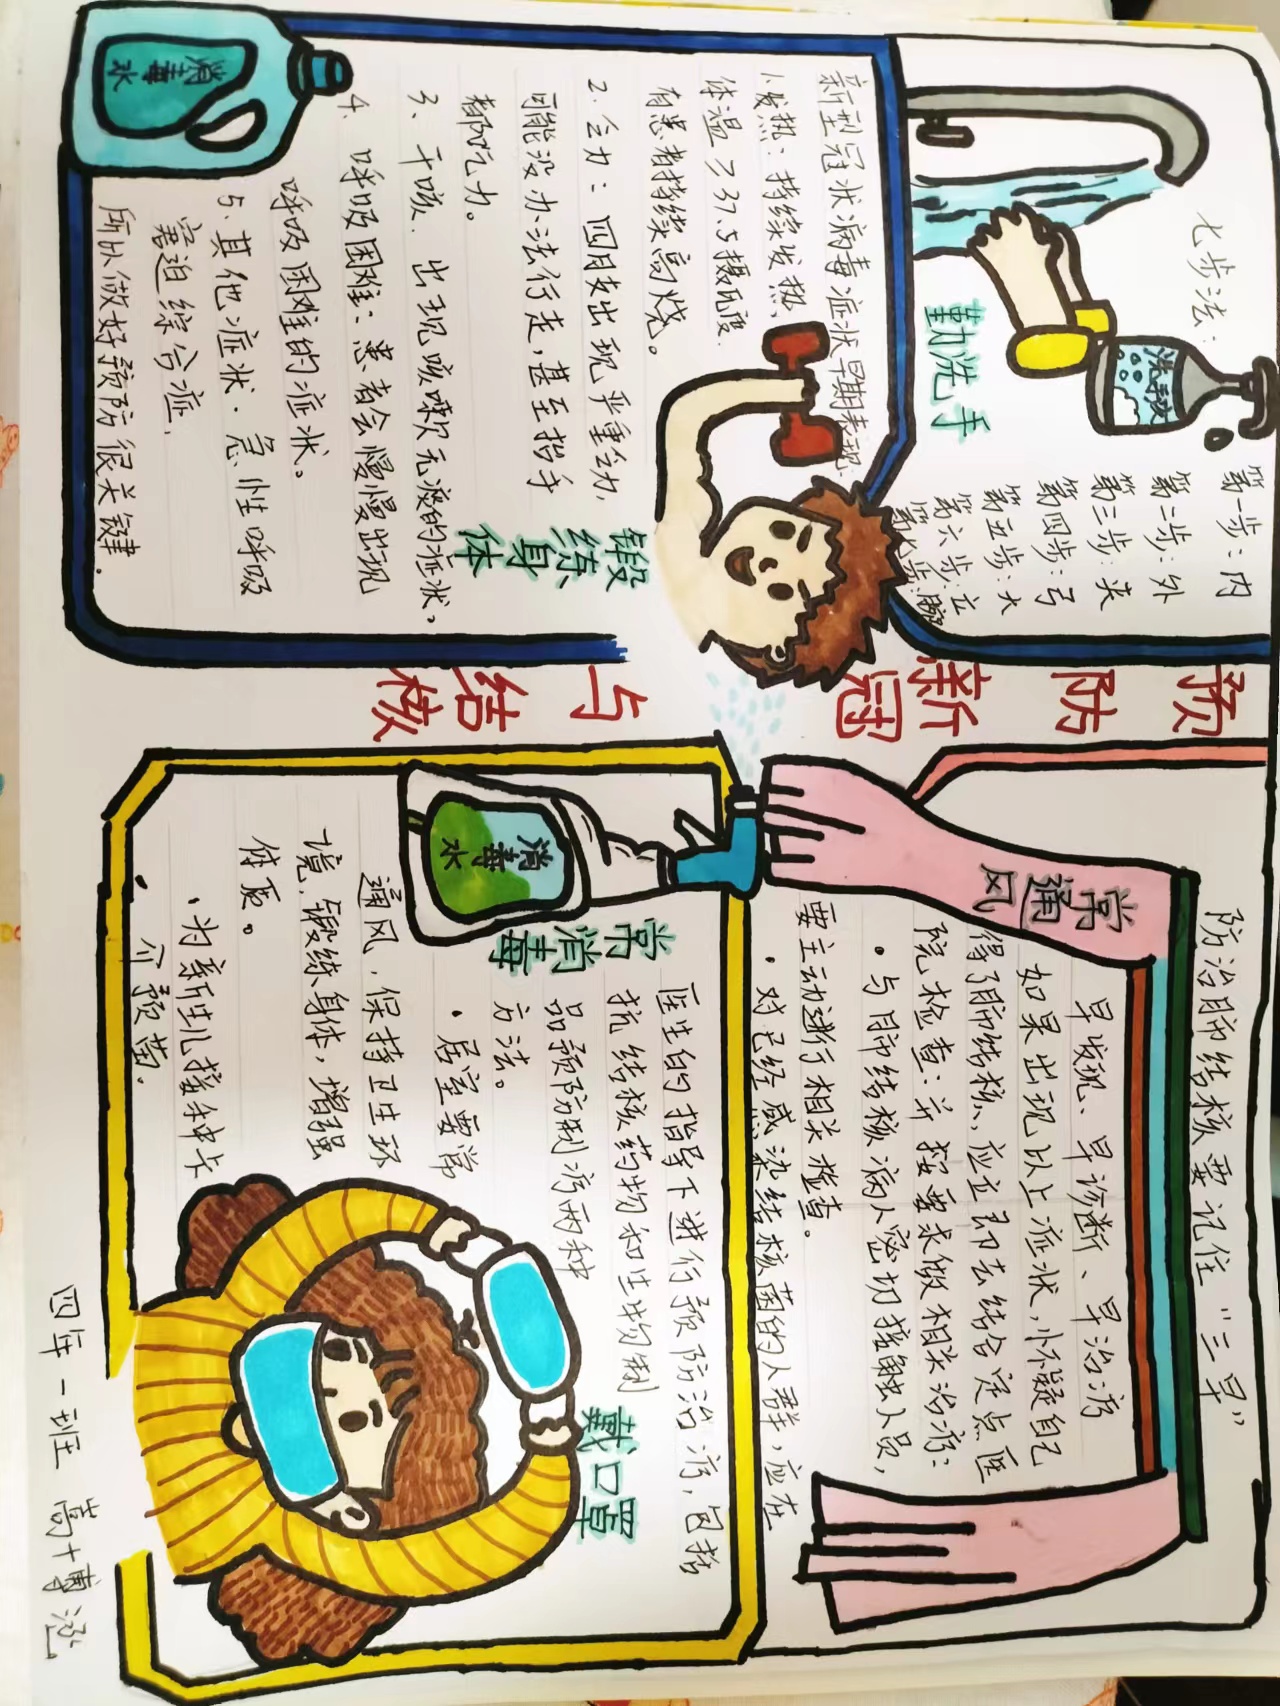 七步法:
勤洗手
洗手液
第一步:内
第二步:外
第三步:夹
第四步:弓
第五步:大
第六步:立
第七步:腕
新型冠状病毒症状早期表现:
1、发热:持续发热,
体温≥37.5摄氏度.
有患者持续高烧。
2.乏力:四月支出现严重乏力,
可能没办法行走,甚至抬手
都吃力。
3、干咳.出现咳嗽无痰的症状。
4.呼吸困难:患者会慢慢出现
呼吸困难的症状。
5.其他症状.急性呼吸
窘迫综合症,
所以做好预防很关键.
锻练身体
消毒水
预防新冠与结核
防治肺结核要记住"三早"
早发现、早诊断、早治疗
如果出现以上症状,怀疑自己
得了肺结核,应立即去结合定点医
院检查:并按要求做相关治疗:
·与肺结核病人密切接触人员,
要主动进行相关检查。
·对已经感染结核菌的人群,应在
常通风
医生的指导下进行预防治疗,包括
抗结核药物和生物制
品预防制疗两种
方法。
·居室要常
通风,保持卫生环
境,锻练身体,增强
体质。
·为新生儿接种卡
介预菌.
消毒水
常消毒
戴口罩
四年一班